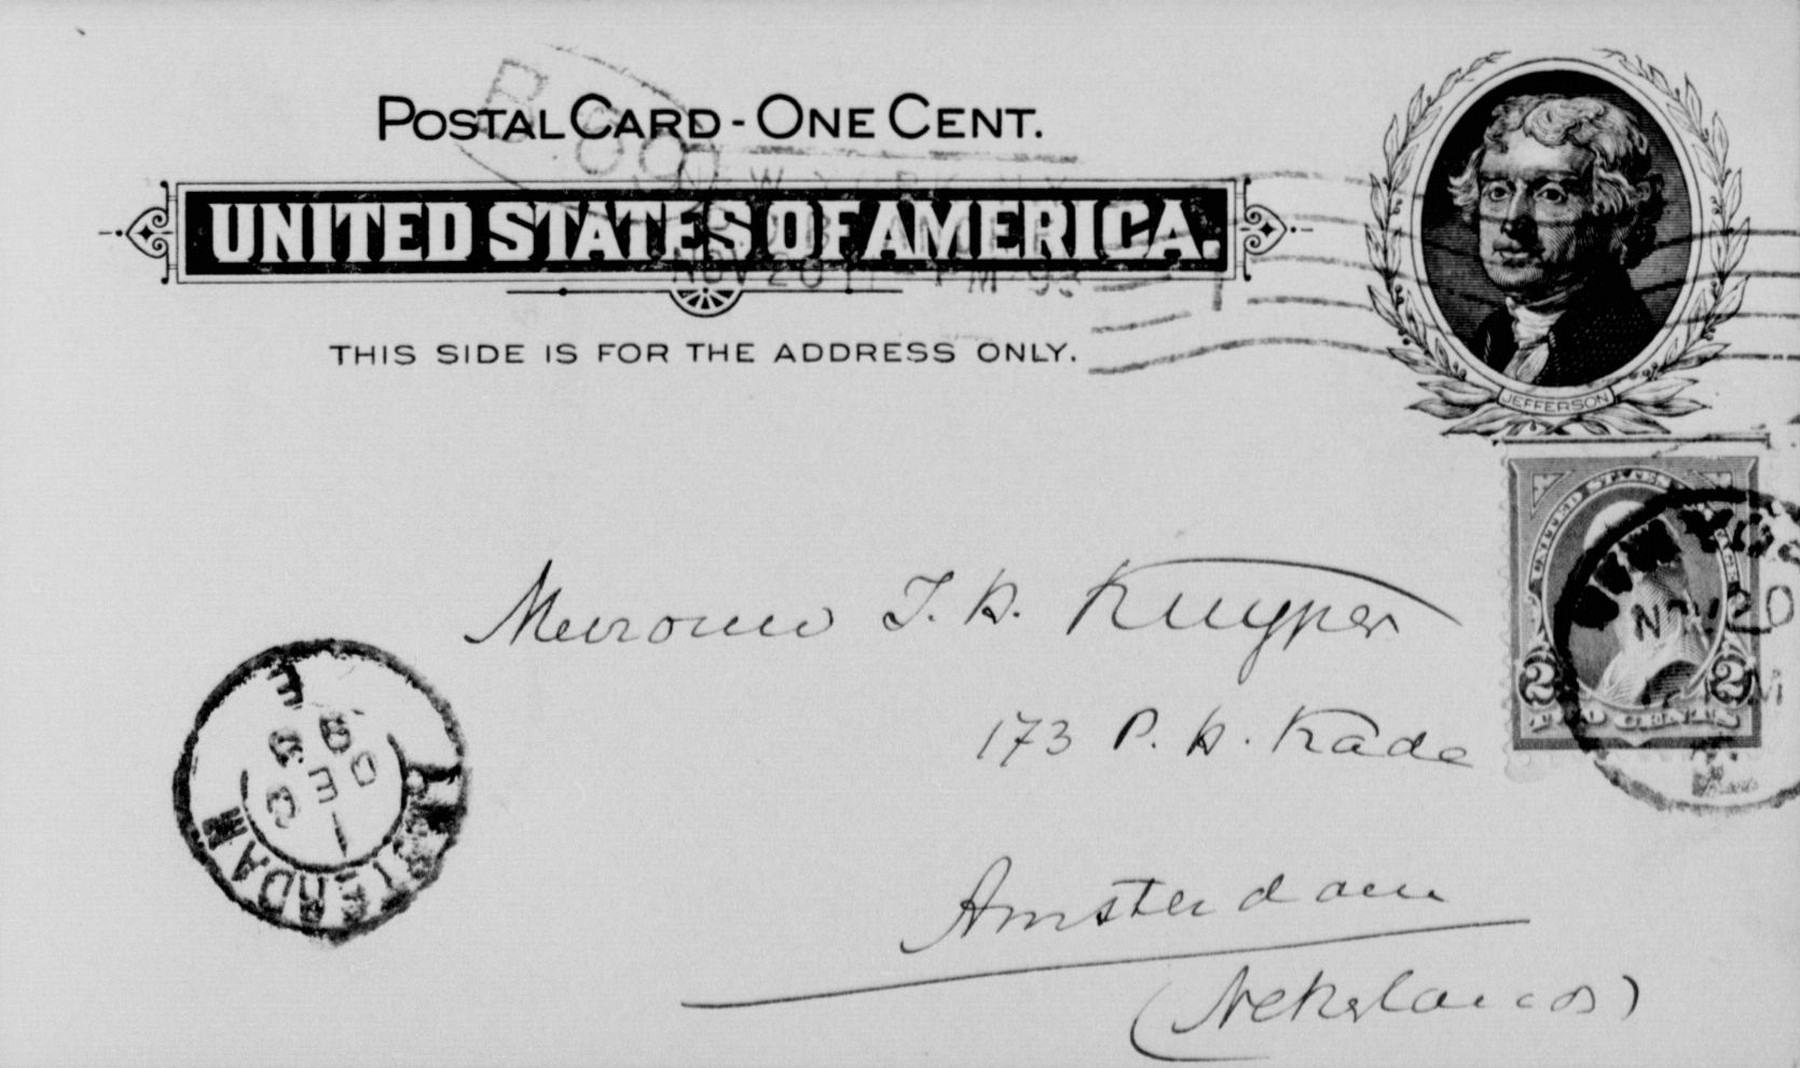 POSTAL CARD - ONE CENT.
UNITED STATES OF AMERICA.
THIS SIDE IS FOR THE ADDRESS ONLY.
JEFFERSON
NOV 20 98
UNITED STATES
2 2
TWO CENTS
NEW YORK
NOV 20
Kuyper
173 P. H. Kade
Amsterdam
(Nederland)
AMSTERDAM
1 DEC
98